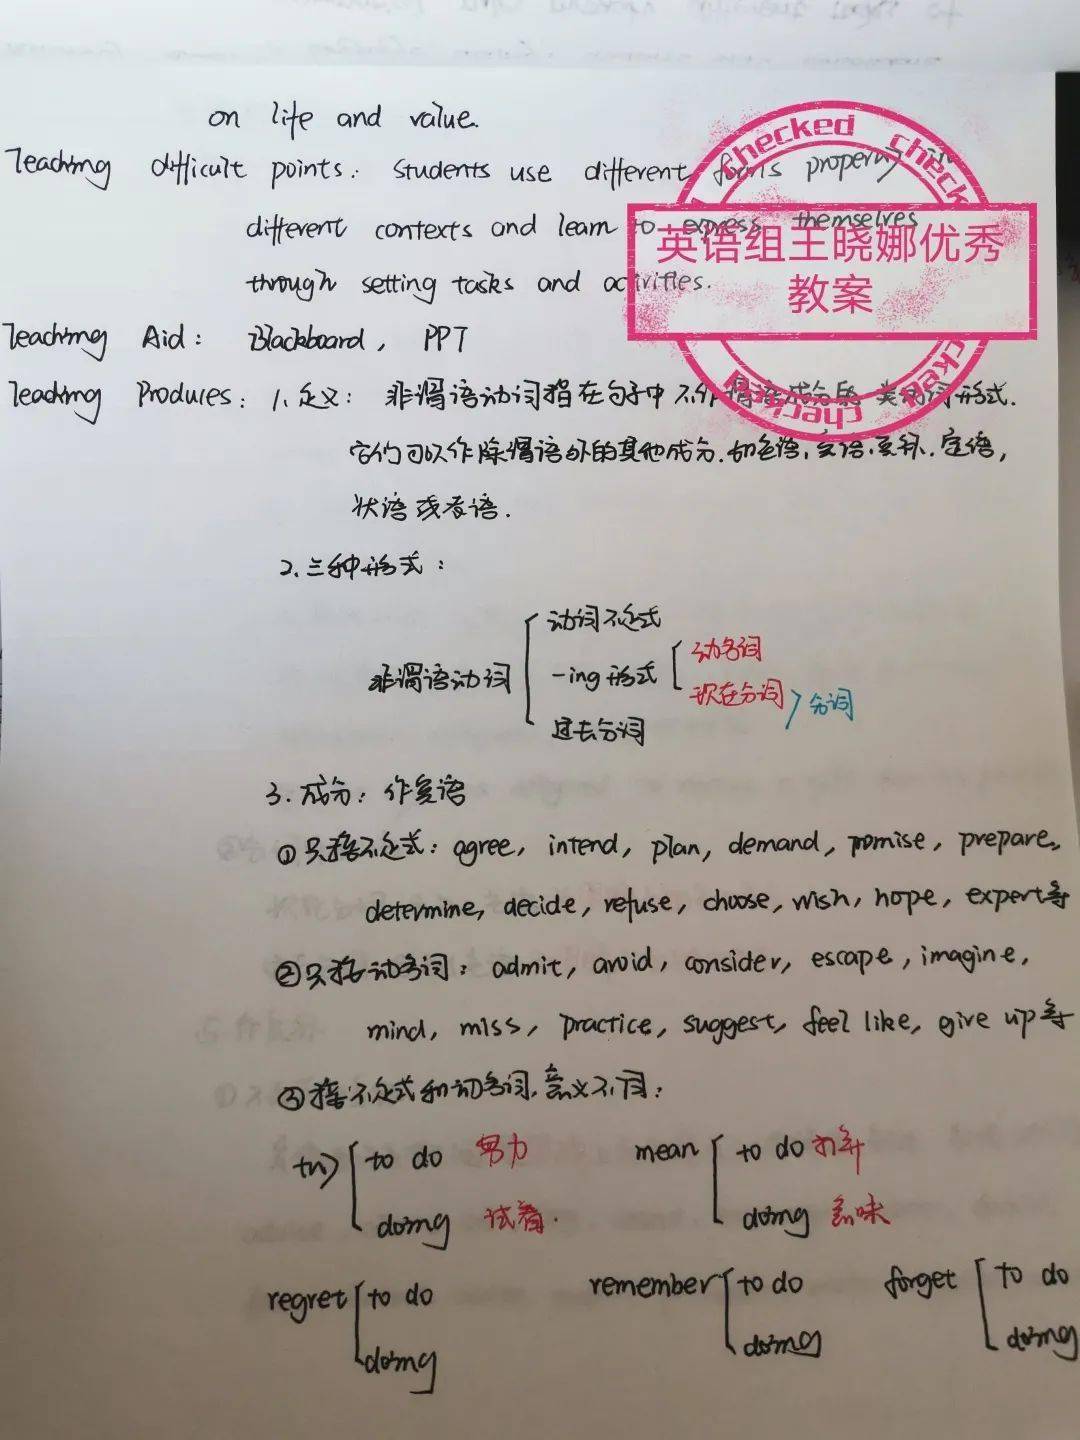 on life and value.
Teaching difficult points: Students use different forms properly in
different contexts and learn to express themselves
through setting tasks and activities.
checked check
英语组王晓娜优秀
教案
checked
checked
Teaching Aid: Blackboard, PPT
Teaching Produres: 1、定义: 非谓语动词指在句子中不作谓语成分的一类动词形式.
它们可以作除谓语外的其他成分.如主语,宾语,宾补.定语,
状语或表语.
2.三种形式:
非谓语动词
动词不定式
-ing形式
动名词
现在分词
分词
过去分词
3.成分:作宾语
①只接不定式: agree, intend, plan, demand, promise, prepare,
determine, decide, refuse, choose, wish, hope, expert等
②只接动名词: admit, avoid, consider, escape, imagine,
mind, miss, practice, suggest, feel like, give up等
③接不定式和动名词,意义不同:
try to do 努力 mean to do 打算
doing 试着. doing 意味
regret to do remember to do forget to do
doing doing doing